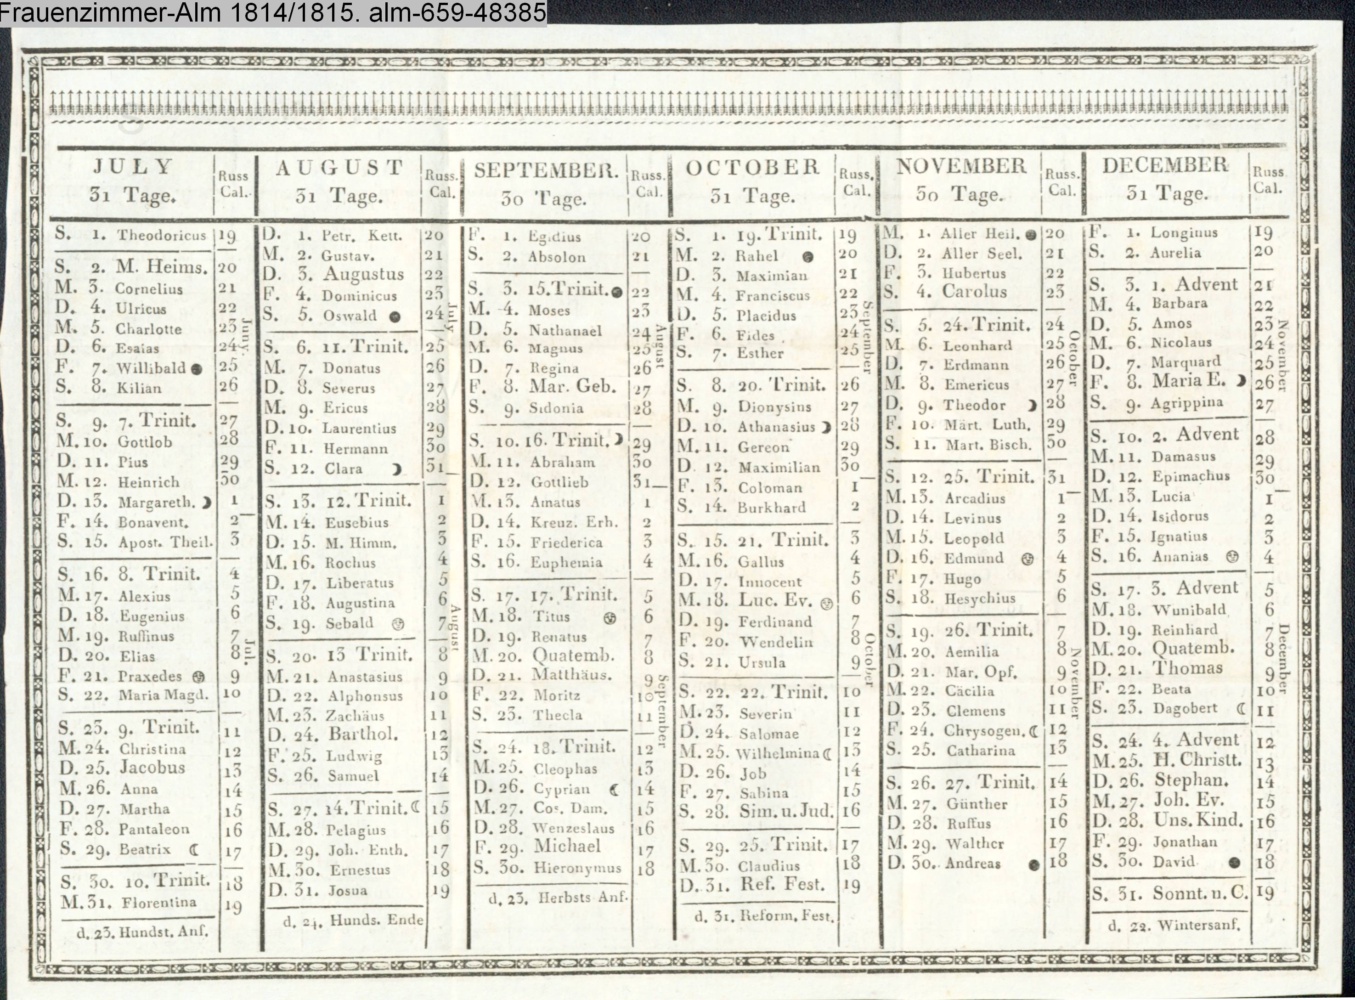 Frauenzimmer-Alm 1814/1815. alm-659-48385
JULY
31 Tage.
Russ
Cal.
S. 1. Theodoricus 19
S. 2. M. Heims. 20
M. 3. Cornelius 21
D. 4. Ulricus 22
M. 5. Charlotte 23
D. 6. Esaias 24
F. 7. Willibald ● 25
S. 8. Kilian 26
S. 9. 7. Trinit. 27
M. 10. Gottlob 28
D. 11. Pius 29
M. 12. Heinrich 30
D. 13. Margareth. ☽ 1
F. 14. Bonavent. 2
S. 15. Apost. Theil. 3
S. 16. 8. Trinit. 4
M. 17. Alexius 5
D. 18. Eugenius 6
M. 19. Ruffinus 7
D. 20. Elias 8
F. 21. Praxedes 9
S. 22. Maria Magd. 10
S. 23. 9. Trinit. 11
M. 24. Christina 12
D. 25. Jacobus 13
M. 26. Anna 14
D. 27. Martha 15
F. 28. Pantaleon 16
S. 29. Beatrix ☾ 17
S. 30. 10. Trinit. 18
M. 31. Florentina 19
d. 23. Hundst. Anf.
Juny.
Jul.
AUGUST
31 Tage.
Russ.
Cal.
D. 1. Petr. Kett. 20
M. 2. Gustav. 21
D. 3. Augustus 22
F. 4. Dominicus 23
S. 5. Oswald ● 24
S. 6. 11. Trinit. 25
M. 7. Donatus 26
D. 8. Severus 27
M. 9. Ericus 28
D. 10. Laurentius 29
F. 11. Hermann 30
S. 12. Clara ☽ 31
S. 13. 12. Trinit. 1
M. 14. Eusebius 2
D. 15. M. Himm. 3
M. 16. Rochus 4
D. 17. Liberatus 5
F. 18. Augustina 6
S. 19. Sebald 7
S. 20. 13 Trinit. 8
M. 21. Anastasius 9
D. 22. Alphonsus 10
M. 23. Zachäus 11
D. 24. Barthol. 12
F. 25. Ludwig 13
S. 26. Samuel 14
S. 27. 14. Trinit. ☾ 15
M. 28. Pelagius 16
D. 29. Joh. Enth. 17
M. 30. Ernestus 18
D. 31. Josua 19
d. 24. Hunds. Ende
July
August
SEPTEMBER.
30 Tage.
Russ.
Cal.
F. 1. Egidius 20
S. 2. Absolon 21
S. 3. 15. Trinit. ● 22
M. 4. Moses 23
D. 5. Nathanael 24
M. 6. Magnus 25
D. 7. Regina 26
F. 8. Mar. Geb. 27
S. 9. Sidonia 28
S. 10. 16. Trinit. ☽ 29
M. 11. Abraham 30
D. 12. Gottlieb 31
M. 13. Amatus 1
D. 14. Kreuz. Erh. 2
F. 15. Friederica 3
S. 16. Euphemia 4
S. 17. 17. Trinit. 5
M. 18. Titus 6
D. 19. Renatus 7
M. 20. Quatemb. 8
D. 21. Matthäus. 9
F. 22. Moritz 10
S. 23. Thecla 11
S. 24. 18. Trinit. 12
M. 25. Cleophas 13
D. 26. Cyprian ☾ 14
M. 27. Cos. Dam. 15
D. 28. Wenzeslaus 16
F. 29. Michael 17
S. 30. Hieronymus 18
d. 23. Herbsts Anf.
August
September
OCTOBER
31 Tage.
Russ.
Cal.
S. 1. 19. Trinit. 19
M. 2. Rahel ● 20
D. 3. Maximian 21
M. 4. Franciscus 22
D. 5. Placidus 23
F. 6. Fides 24
S. 7. Esther 25
S. 8. 20. Trinit. 26
M. 9. Dionysius 27
D. 10. Athanasius ☽ 28
M. 11. Gereon 29
D. 12. Maximilian 30
F. 13. Coloman 1
S. 14. Burkhard 2
S. 15. 21. Trinit. 3
M. 16. Gallus 4
D. 17. Innocent 5
M. 18. Luc. Ev. 6
D. 19. Ferdinand 7
F. 20. Wendelin 8
S. 21. Ursula 9
S. 22. 22. Trinit. 10
M. 23. Severin 11
D. 24. Salomae 12
M. 25. Wilhelmina ☾ 13
D. 26. Job 14
F. 27. Sabina 15
S. 28. Sim. u. Jud. 16
S. 29. 23. Trinit. 17
M. 30. Claudius 18
D. 31. Ref. Fest. 19
d. 31. Reform. Fest.
September
October
NOVEMBER
30 Tage.
Russ.
Cal.
M. 1. Aller Heil. ● 20
D. 2. Aller Seel. 21
F. 3. Hubertus 22
S. 4. Carolus 23
S. 5. 24. Trinit. 24
M. 6. Leonhard 25
D. 7. Erdmann 26
M. 8. Emericus 27
D. 9. Theodor ☽ 28
F. 10. Mart. Luth. 29
S. 11. Mart. Bisch. 30
S. 12. 25. Trinit. 31
M. 13. Arcadius 1
D. 14. Levinus 2
M. 15. Leopold 3
D. 16. Edmund 4
F. 17. Hugo 5
S. 18. Hesychius 6
S. 19. 26. Trinit. 7
M. 20. Aemilia 8
D. 21. Mar. Opf. 9
M. 22. Cäcilia 10
D. 23. Clemens 11
F. 24. Chrysogen. ☾ 12
S. 25. Catharina 13
S. 26. 27. Trinit. 14
M. 27. Günther 15
D. 28. Ruffus 16
M. 29. Walther 17
D. 30. Andreas ● 18
October
November
DECEMBER
31 Tage.
Russ
Cal.
F. 1. Longinus 19
S. 2. Aurelia 20
S. 3. 1. Advent 21
M. 4. Barbara 22
D. 5. Amos 23
M. 6. Nicolaus 24
D. 7. Marquard 25
F. 8. Maria E. ☽ 26
S. 9. Agrippina 27
S. 10. 2. Advent 28
M. 11. Damasus 29
D. 12. Epimachus 30
M. 13. Lucia 1
D. 14. Isidorus 2
F. 15. Ignatius 3
S. 16. Ananias 4
S. 17. 3. Advent 5
M. 18. Wunibald 6
D. 19. Reinhard 7
M. 20. Quatemb. 8
D. 21. Thomas 9
F. 22. Beata 10
S. 23. Dagobert ☾ 11
S. 24. 4. Advent 12
M. 25. H. Christt. 13
D. 26. Stephan. 14
M. 27. Joh. Ev. 15
D. 28. Uns. Kind. 16
F. 29. Jonathan 17
S. 30. David ● 18
S. 31. Sonnt. n. C. 19
d. 22. Wintersanf.
November
December